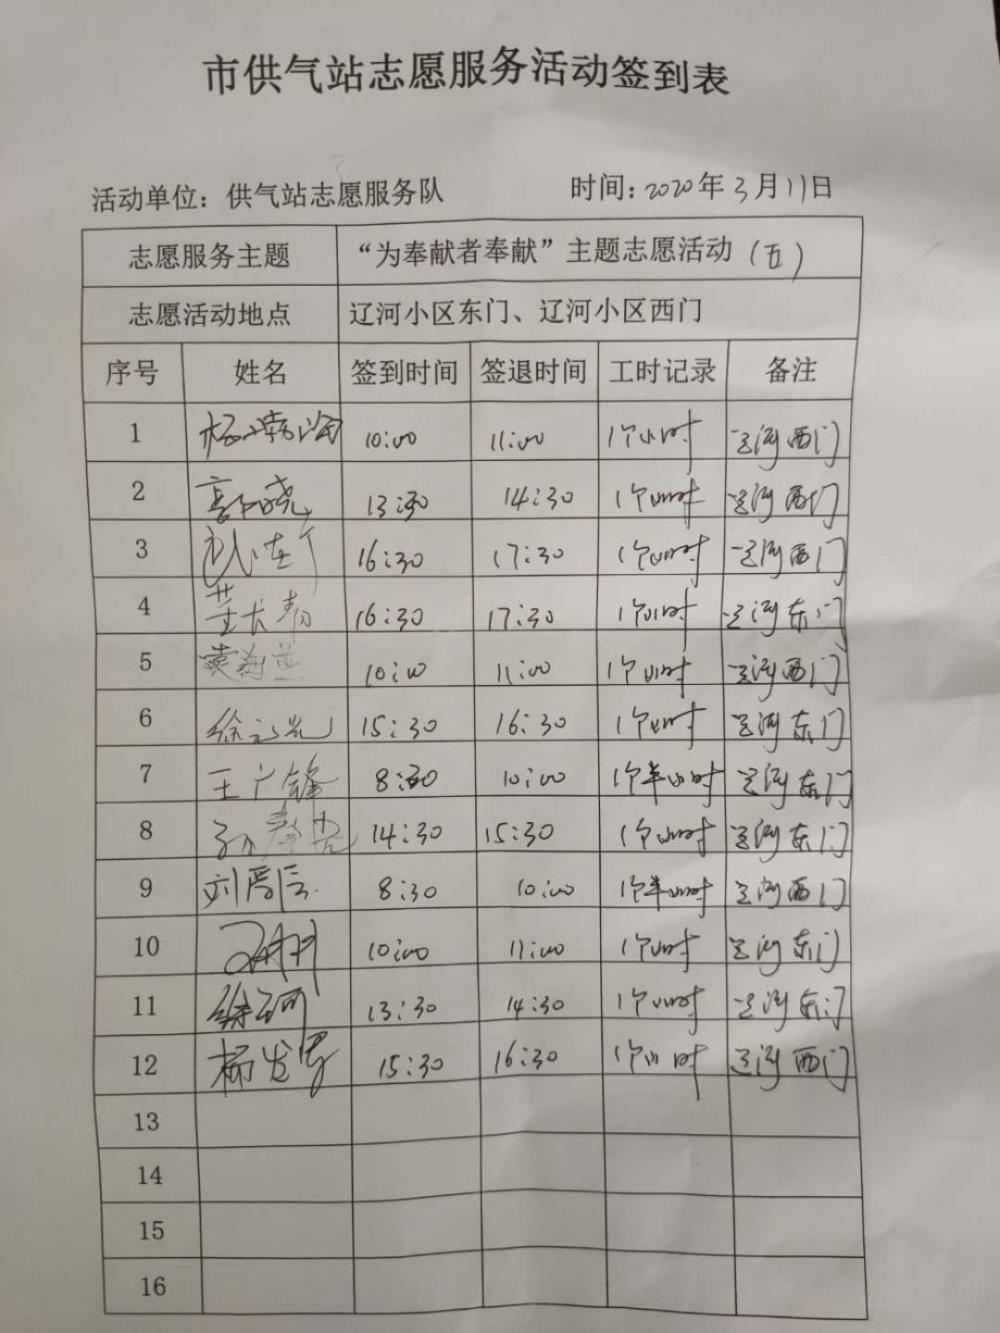 市供气站志愿服务活动签到表
活动单位：供气站志愿服务队 时间：2020年3月11日
志愿服务主题 “为奉献者奉献”主题志愿活动（五）
志愿活动地点 辽河小区东门、辽河小区西门
序号 姓名 签到时间 签退时间 工时记录 备注
1 10:00 11:00 1个小时 辽河西门
2 郭晓 13:30 14:30 1个小时 辽河西门
3 16:30 17:30 1个小时 辽河西门
4 董长春 16:30 17:30 1个小时 辽河东门
5 袁海燕 10:00 11:00 1个小时 辽河西门
6 徐 15:30 16:30 1个小时 辽河东门
7 王广锋 8:30 10:00 1个半小时 辽河东门
8 孙 14:30 15:30 1个小时 辽河东门
9 刘 8:30 10:00 1个半小时 辽河西门
10 10:00 11:00 1个小时 辽河东门
11 徐 13:30 14:30 1个小时 辽河东门
12 杨 15:30 16:30 1个小时 辽河西门
13
14
15
16